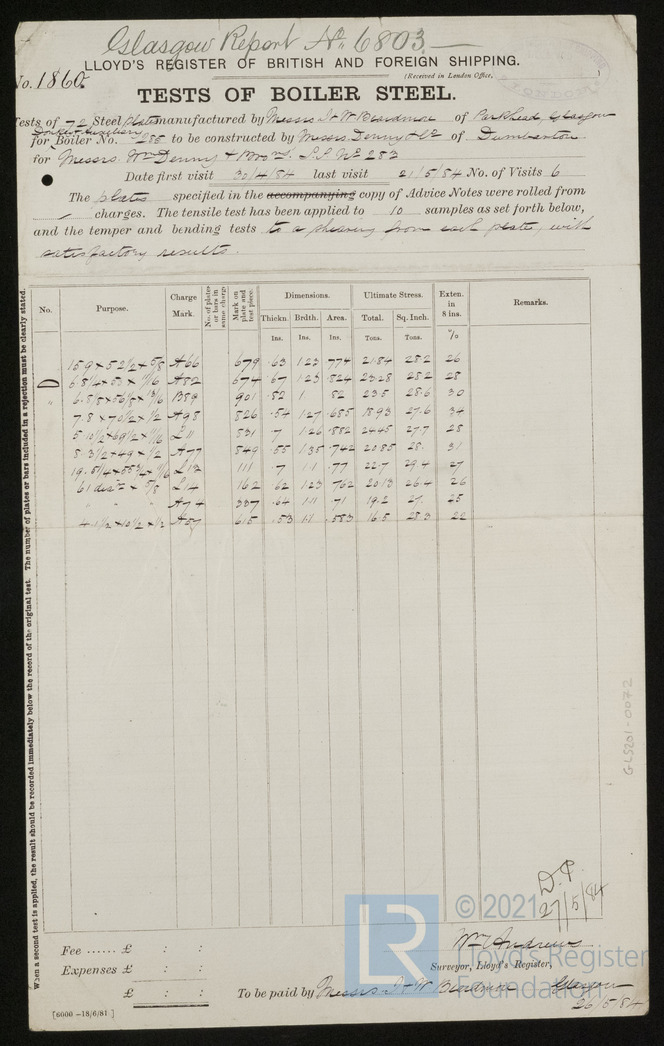 Glasgow Report No. 6803.
LLOYD'S REGISTER OF BRITISH AND FOREIGN SHIPPING.
No. 1860.
(Received in London Office,
TESTS OF BOILER STEEL.
Tests of 72 Steel plates manufactured by Messrs J & W Beardmore of Parkhead, Glasgow
for Boiler No. 285 to be constructed by Messrs Denny & Co of Dumbarton
for Messrs Wm Denny & Bros. S.S. No 283
Date first visit 30/4/84 last visit 21/5/84 No. of Visits 6
The plates specified in the accompanying copy of Advice Notes were rolled from
charges. The tensile test has been applied to 10 samples as set forth below,
and the temper and bending tests to a shearing from each plate, with
satisfactory results.
No. Purpose. Charge Mark. No. of plates or bars in same charge Mark on plate and test piece. Dimensions. Ultimate Stress. Exten. in 8 ins. Remarks.
Thickn. Brdth. Area. Total. Sq. Inch.
Ins. Ins. Ins. Tons. Tons. %
A66 679 .63 1.23 .774 21.84 28.2 26
A82 674 .67 1.23 .824 23.28 28.2 28
B89 901 .82 1 .82 23.5 28.6 30
7.8 × 70 1/2 × 1/2 A98 826 .54 1.27 .685 18.93 27.6 34
L11 831 .7 1.26 .882 24.45 27.7 28
8.3 1/2 × 49 × 1/2 A77 849 .55 1.35 .742 20.85 28. 31
111 .7 1.1 .77 22.7 29.4 27
L14 162 .62 1.23 .762 20.13 26.4 26
A74 337 .64 1.11 .71 19.2 27. 25
4.1 1/2 × 10 1/2 × 1/2 A57 615 .53 1.1 .583 16.5 28.3 22
When a second test is applied, the result should be recorded immediately below the record of the original test. The number of plates or bars included in a rejection must be clearly stated.
GLS201-0072
D.P.
27/5/84
© 2021
LR
Lloyd's Register
Foundation
Fee ...... £ : :
Wm Andrews
Expenses £ : :
Surveyor, Lloyd's Register,
£ : :
To be paid by Messrs J & W Beardmore Glasgow
26/5/84
[6000 -18/6/81.]